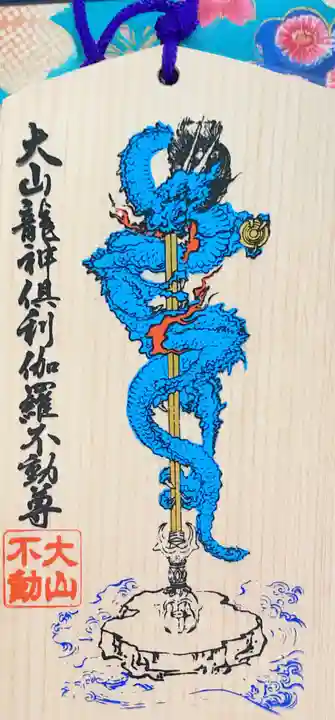 大山龍神倶利伽羅不動尊
大山
不動